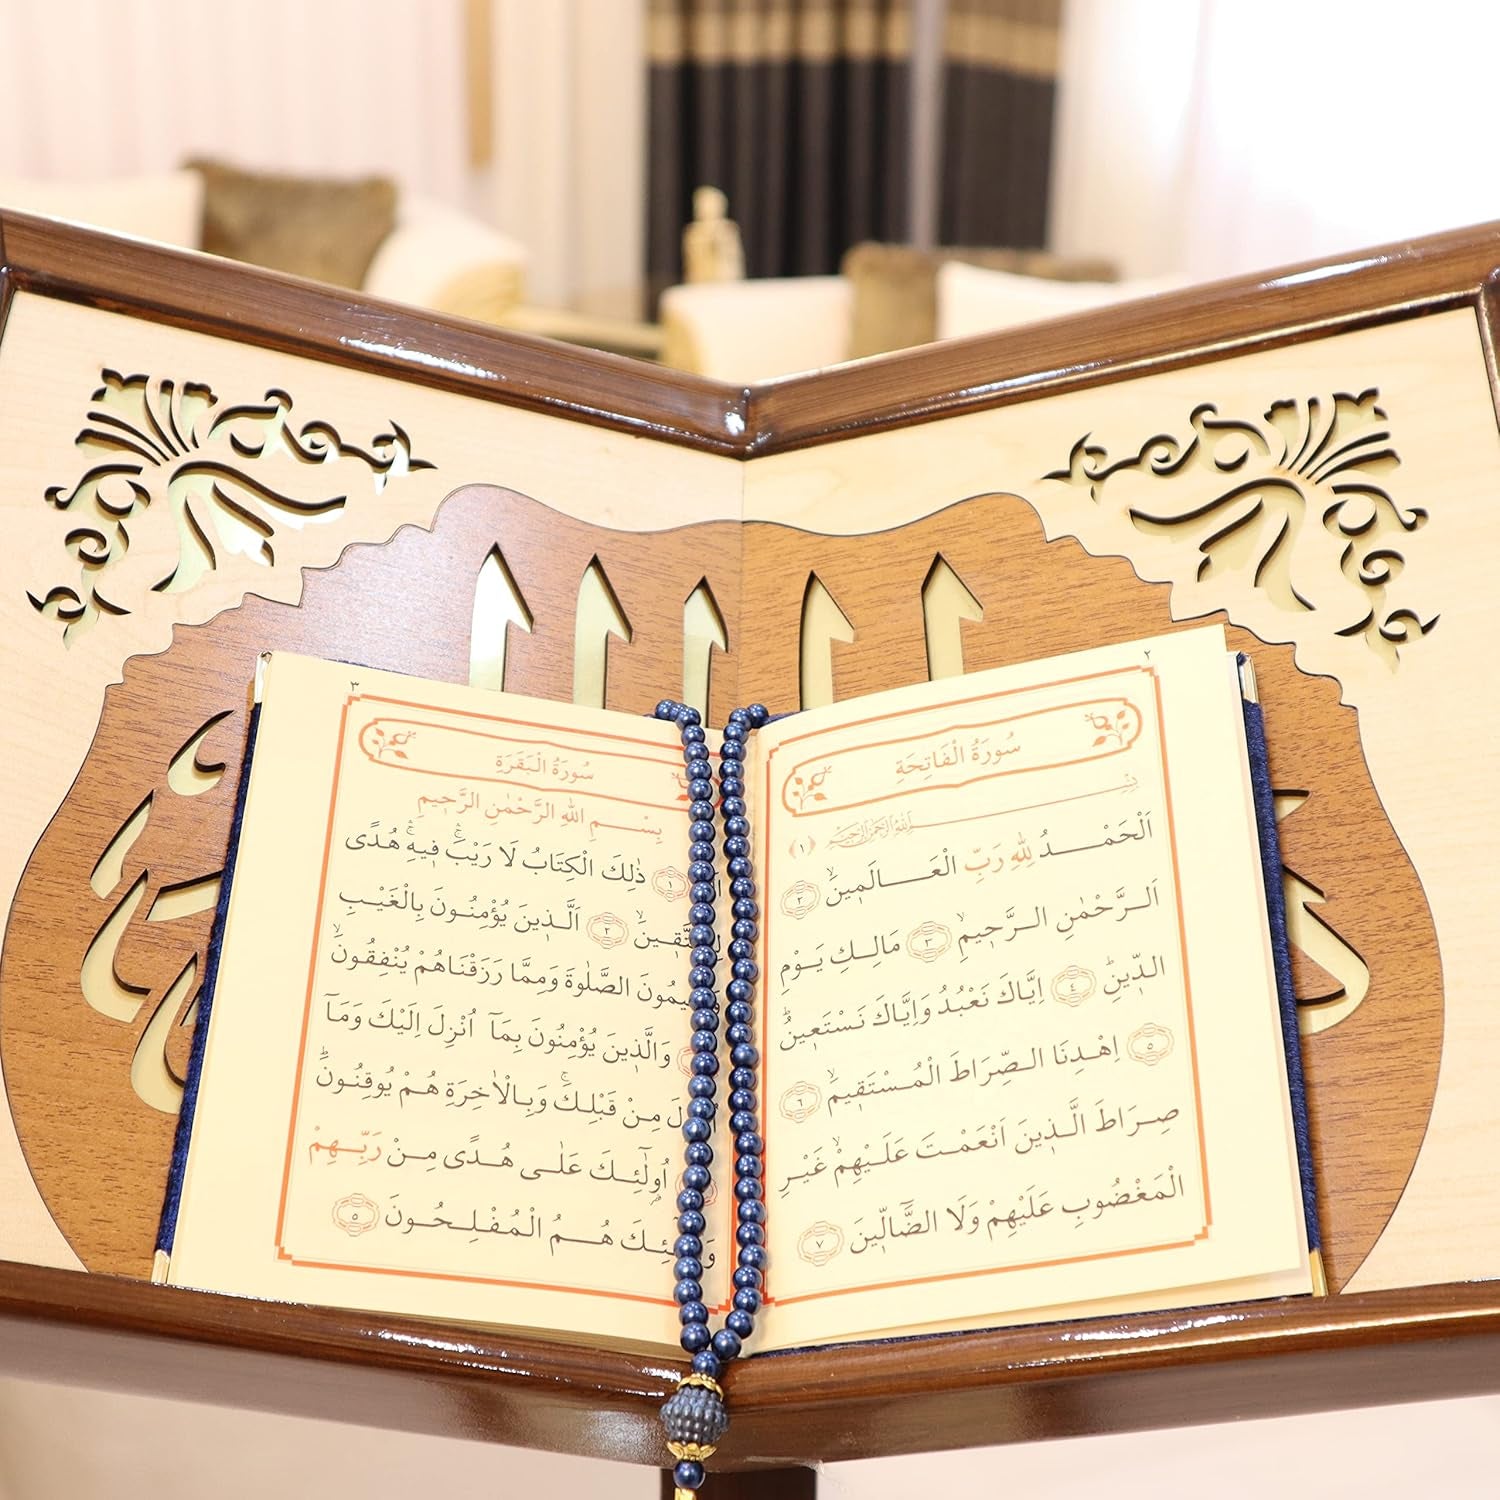 ٢
سُورَةُ الْفَاتِحَةِ
بِسْمِ اللهِ الرَّحْمٰنِ الرَّحِيمِ ﴿١﴾
اَلْحَمْدُ لِلهِ رَبِّ الْعَالَمِينَۙ ﴿٢﴾
اَلرَّحْمٰنِ الرَّحِيمِۙ ﴿٣﴾ مَالِكِ يَوْمِ
الدِّينِۜ ﴿٤﴾ اِيَّاكَ نَعْبُدُ وَاِيَّاكَ نَسْتَعِينُۜ
﴿٥﴾ اِهْدِنَا الصِّرَاطَ الْمُسْتَقِيمَۙ ﴿٦﴾
صِرَاطَ الَّذِينَ اَنْعَمْتَ عَلَيْهِمْۙ غَيْرِ
الْمَغْضُوبِ عَلَيْهِمْ وَلَا الضَّٓالِّينَ ﴿٧﴾
٣
سُورَةُ الْبَقَرَةِ
بِسْمِ اللهِ الرَّحْمٰنِ الرَّحِيمِ
﴿١﴾ ذٰلِكَ الْكِتَابُ لَا رَيْبَۚ فِيهِۚ هُدًى
﴿٢﴾ اَلَّذِينَ يُؤْمِنُونَ بِالْغَيْبِ
الصَّلٰوةَ وَمِمَّا رَزَقْنَاهُمْ يُنْفِقُونَۙ
وَالَّذِينَ يُؤْمِنُونَ بِمَٓا اُنْزِلَ اِلَيْكَ وَمَٓا
مِنْ قَبْلِكَۚ وَبِالْاٰخِرَةِ هُمْ يُوقِنُونَۜ
اُو۬لٰٓئِكَ عَلٰى هُدًى مِنْ رَبِّهِمْ
هُمُ الْمُفْلِحُونَ ﴿٥﴾